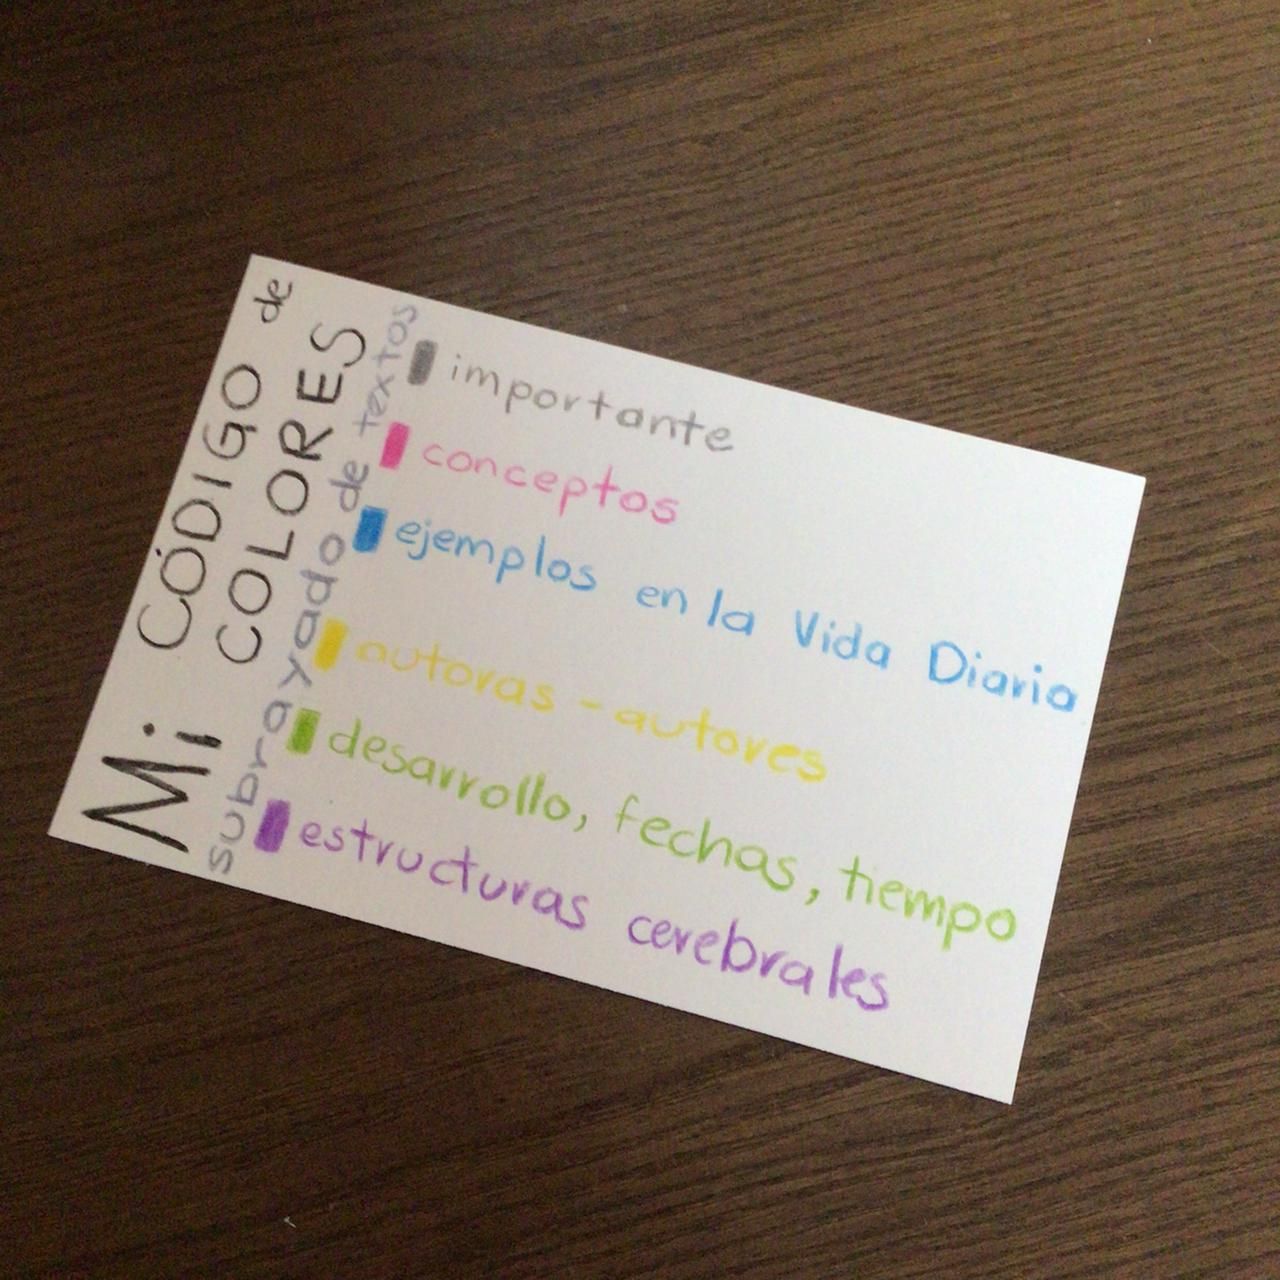 Mi CÓDIGO de
COLORES
subrayado de textos
importante
conceptos
ejemplos en la Vida Diaria
autoras - autores
desarrollo, fechas, tiempo
estructuras cerebrales